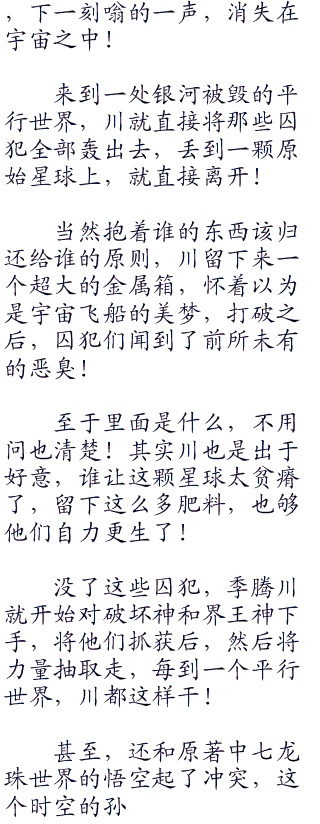 ，下一刻嗡的一声，消失在
宇宙之中！
来到一处银河被毁的平
行世界，川就直接将那些囚
犯全部轰出去，丢到一颗原
始星球上，就直接离开！
当然抱着谁的东西该归
还给谁的原则，川留下来一
个超大的金属箱，怀着以为
是宇宙飞船的美梦，打破之
后，囚犯们闻到了前所未有
的恶臭！
至于里面是什么，不用
问也清楚！其实川也是出于
好意，谁让这颗星球太贫瘠
了，留下这么多肥料，也够
他们自力更生了！
没了这些囚犯，季腾川
就开始对破坏神和界王神下
手，将他们抓获后，然后将
力量抽取走，每到一个平行
世界，川都这样干！
甚至，还和原著中七龙
珠世界的悟空起了冲突，这
个时空的孙